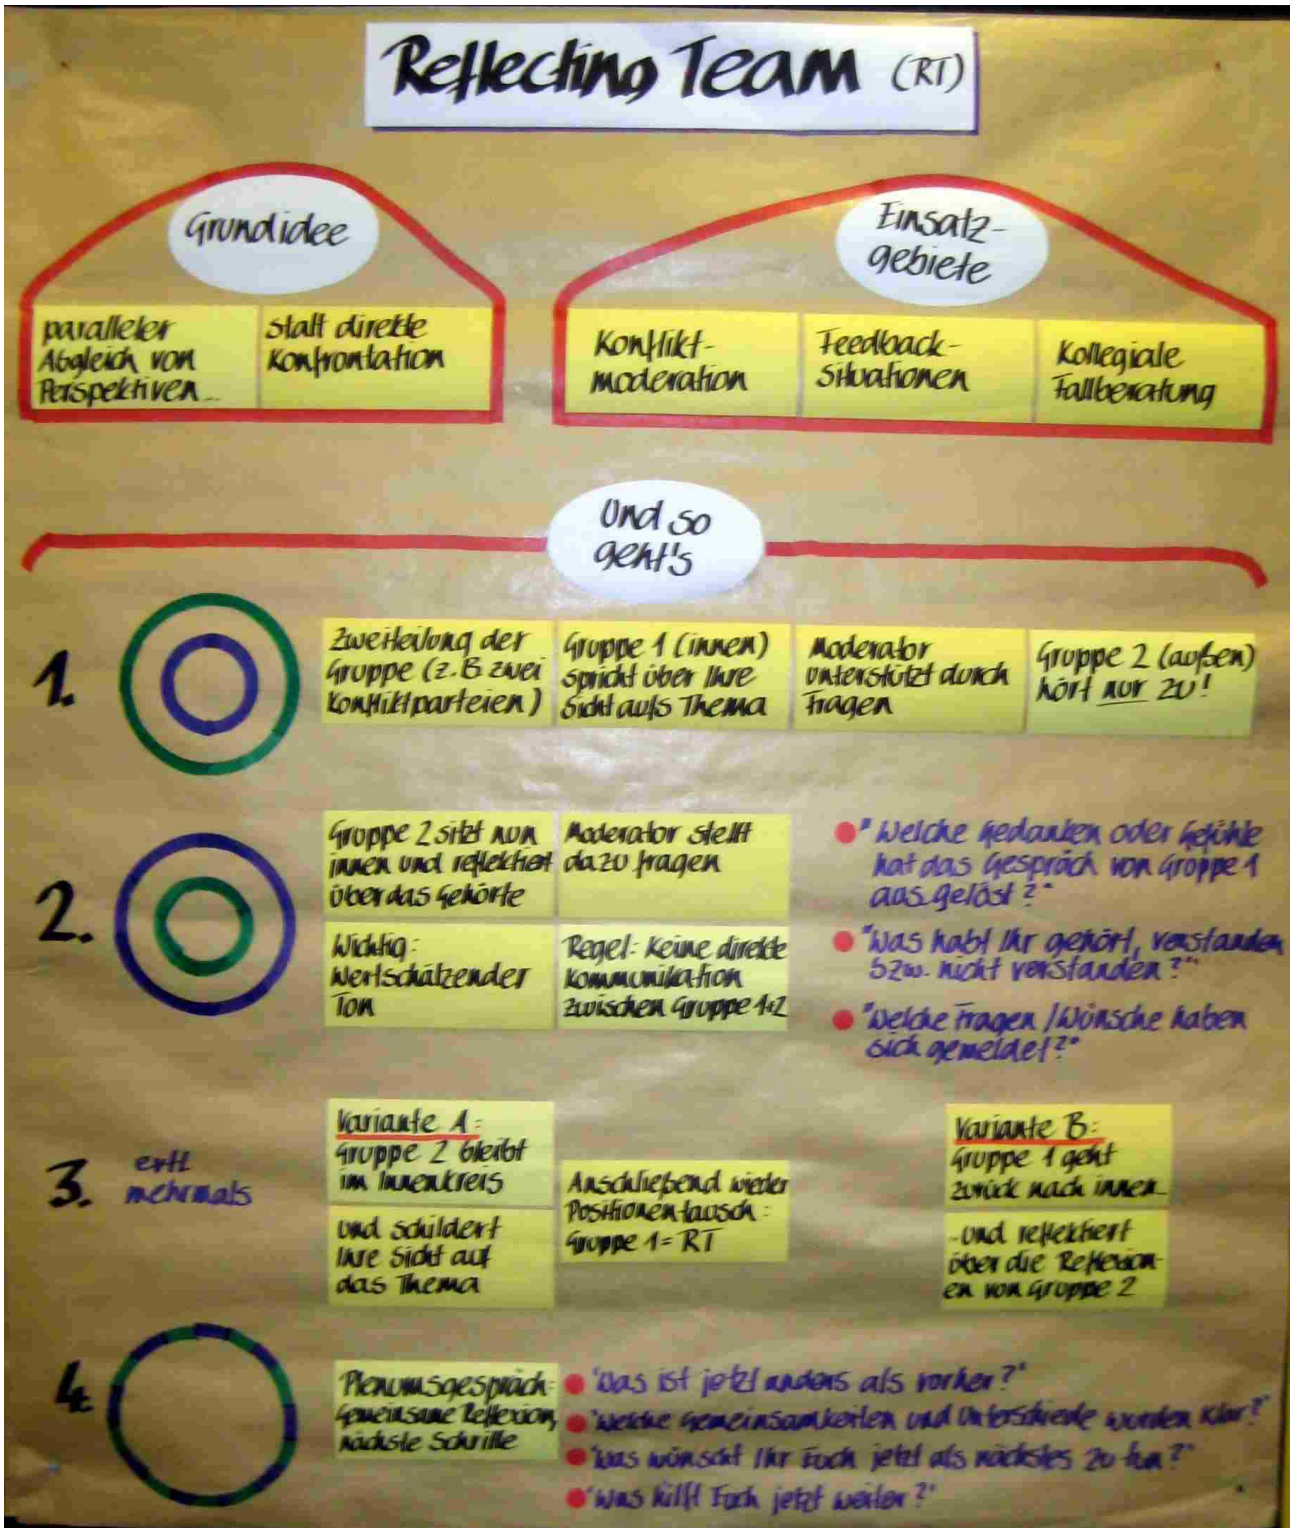 Reflecting Team (RT)
Grundidee
paralleler
Abgleich von
Perspektiven...
statt direkte
Konfrontation
Einsatz-
gebiete
Konflikt-
moderation
Feedback-
Situationen
Kollegiale
Fallberatung
Und so
geht's
1.
Zweiteilung der
Gruppe (z.B zwei
Konfliktparteien)
Gruppe 1 (innen)
spricht über Ihre
Sicht aufs Thema
Moderator
unterstützt durch
Fragen
Gruppe 2 (außen)
hört nur zu!
2.
Gruppe 2 sitzt nun
innen und reflektiert
über das Gehörte
Moderator stellt
dazu Fragen
Wichtig:
Wertschätzender
Ton
Regel: Keine direkte
Kommunikation
zwischen Gruppe 1+2
"Welche Gedanken oder Gefühle
hat das Gespräch von Gruppe 1
ausgelöst?"
"Was habt Ihr gehört, verstanden
bzw. nicht verstanden?"
"Welche Fragen/Wünsche haben
sich gemeldet?"
3.
evtl
mehrmals
Variante A:
Gruppe 2 bleibt
im Innenkreis
und schildert
Ihre Sicht auf
das Thema
Anschließend wieder
Positionentausch:
Gruppe 1 = RT
Variante B:
Gruppe 1 geht
zurück nach innen...
...und reflektiert
über die Reflexion-
en von Gruppe 2
4.
Plenumsgespräch:
Gemeinsame Reflexion,
nächste Schritte
"Was ist jetzt anders als vorher?"
"Welche Gemeinsamkeiten und Unterschiede wurden klar?"
"Was wünscht Ihr Euch jetzt als nächstes zu tun?"
"Was hilft Euch jetzt weiter?"